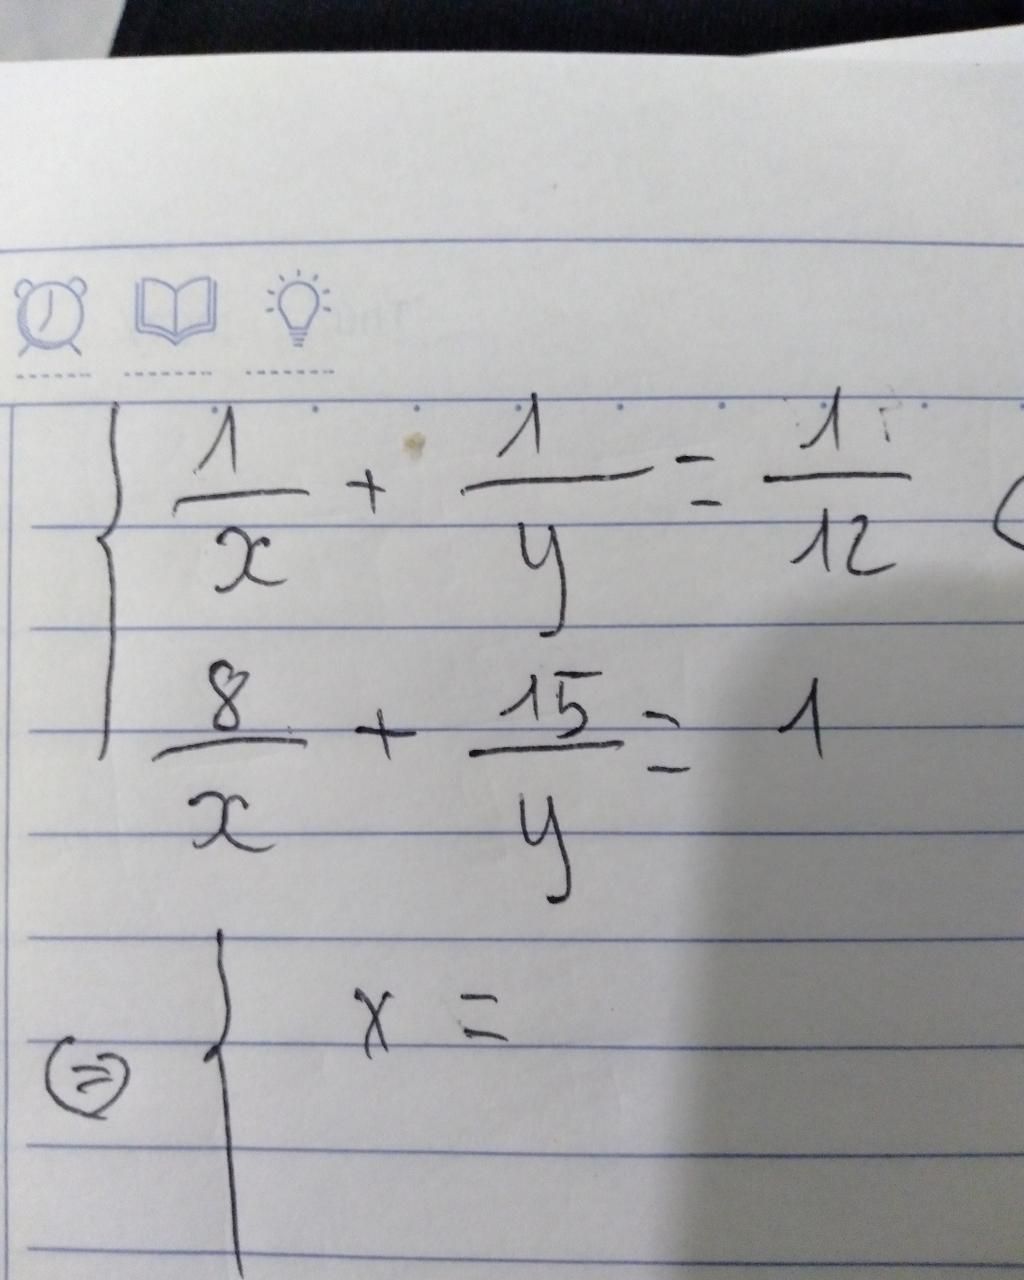 1/x + 1/y = 1/12
8/x + 15/y = 1
⇔ x =